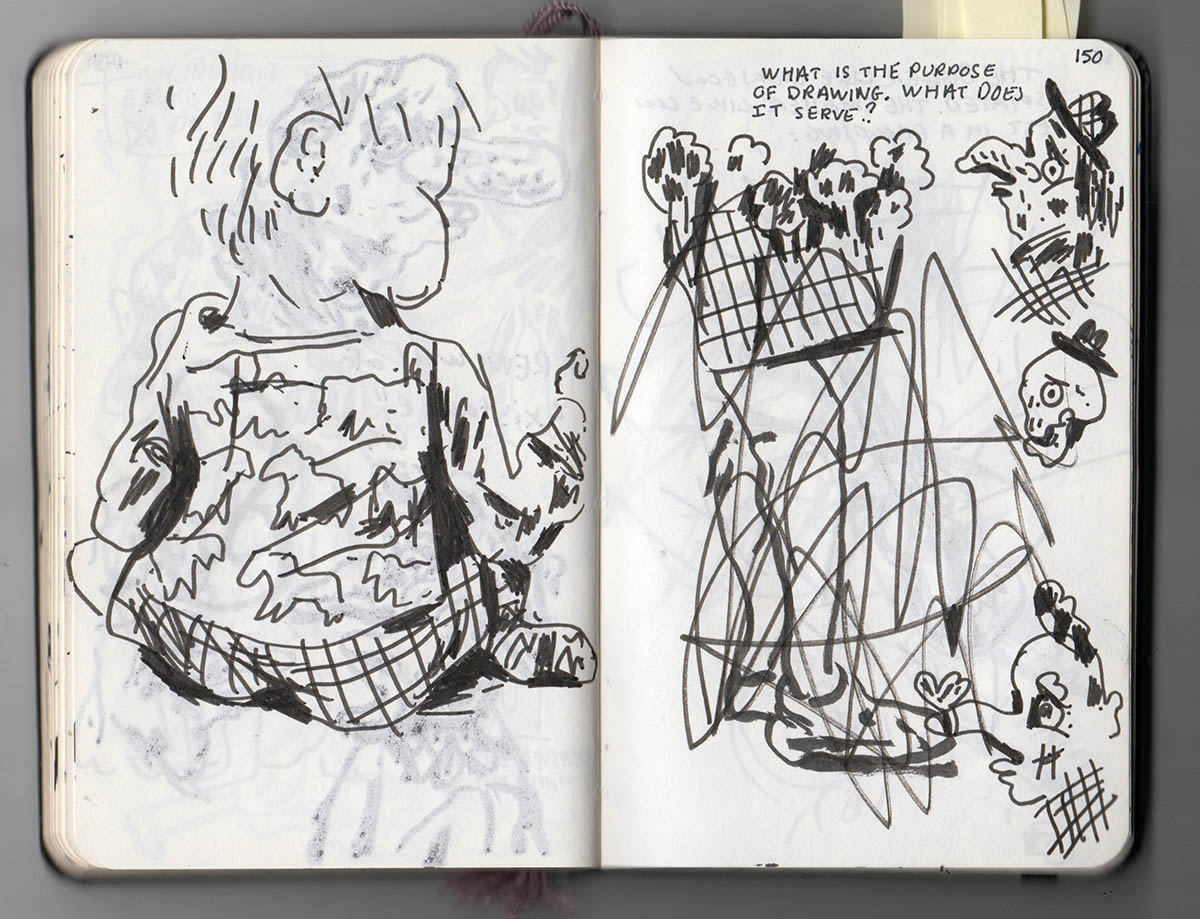 150
WHAT IS THE PURPOSE
OF DRAWING. WHAT DOES
IT SERVE?